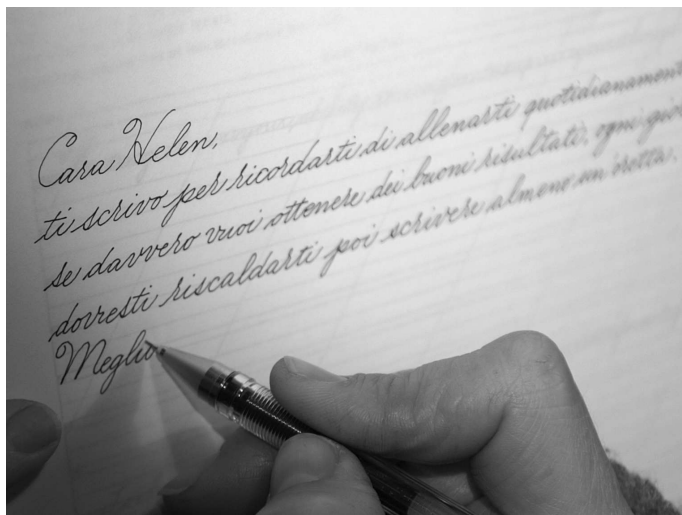 Cara Helen,
ti scrivo per ricordarti di allenarti quotidianament
se davvero vuoi ottenere dei buoni risultati, ogni gior
dovresti riscaldarti poi scrivere almeno un'oretta.
Meglio